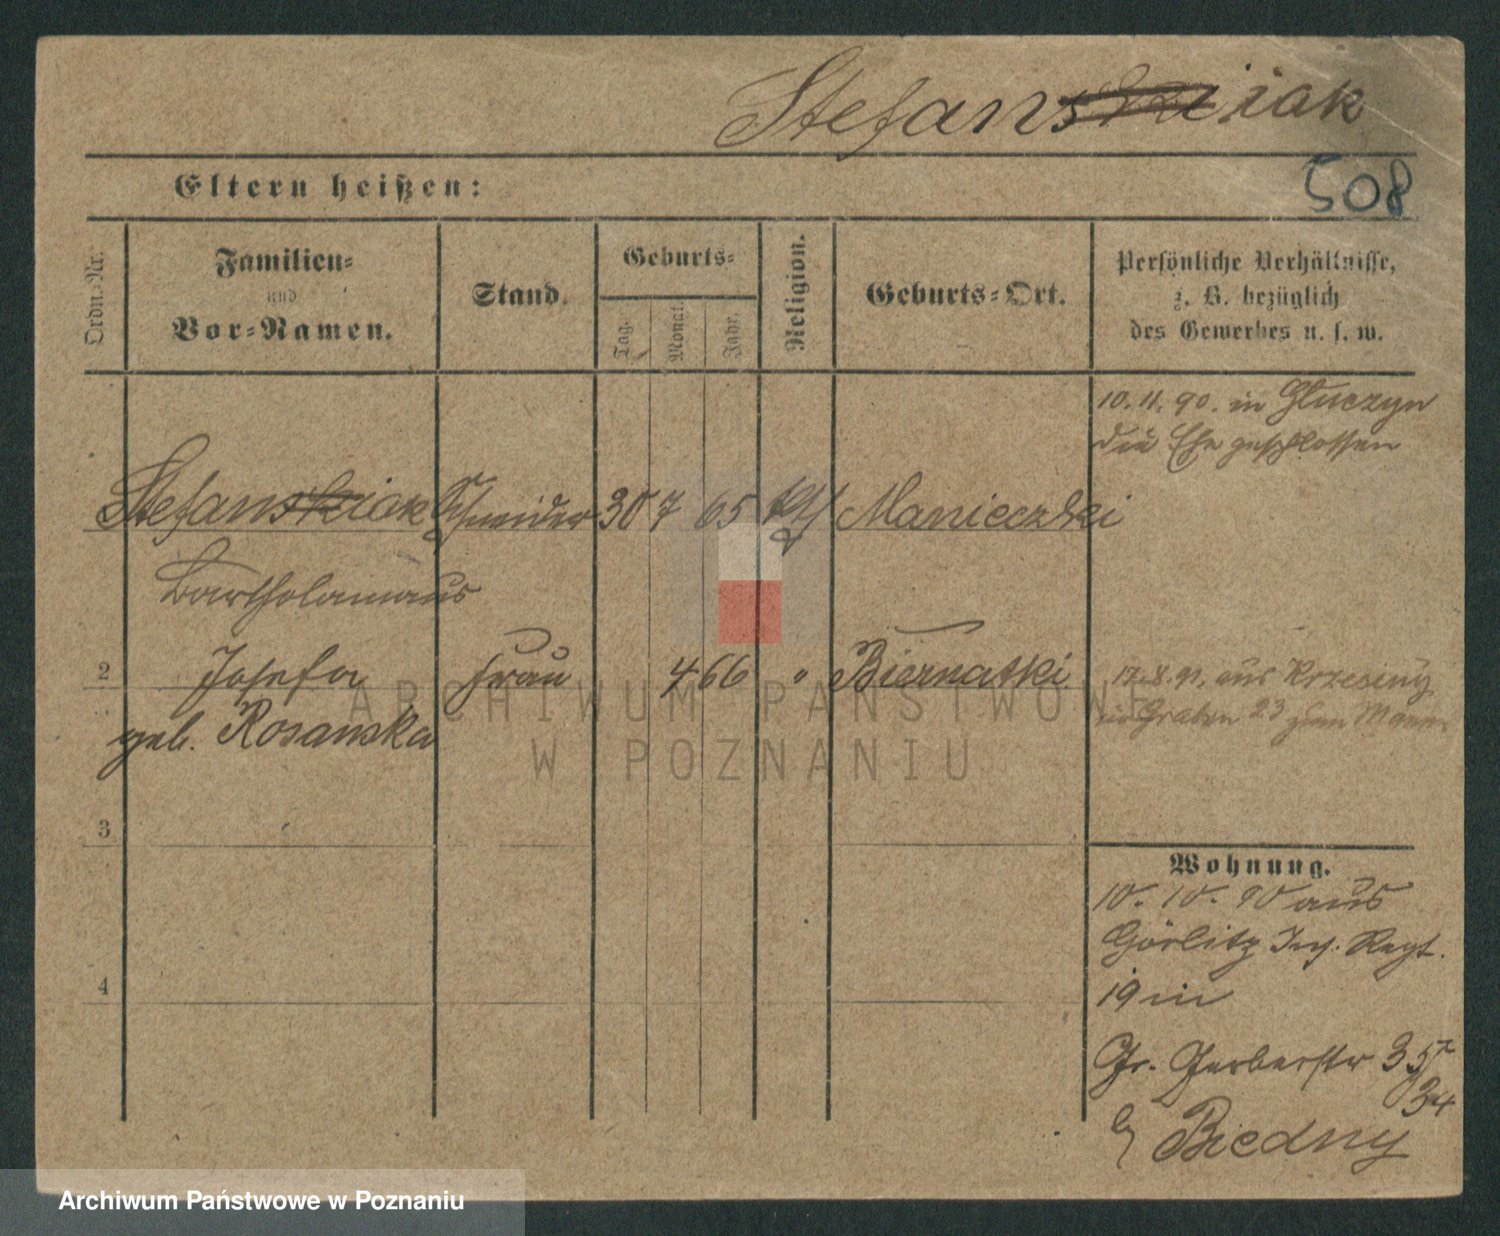 Stefaniak
508
Eltern heißen:
Ordn.-Nr.
Familien-
und
Vor-Namen.
Stand.
Geburts-
Tag.
Monat.
Jahr.
Religion.
Geburts-Ort.
Persönliche Verhältnisse,
z. B. bezüglich
des Gewerbes u. s. w.
10. 11. 90. in Gluczyn
die Ehe geschlossen
Stefaniak Schneider 30 7 65 kth Manieczki
Bartholamäus
2 Josefa Frau 4 66 " Biernatki
geb. Rosanska
17. 8. 91. aus Krzesiny
in Graben 23 zum Mann
3
Wohnung.
10. 10. 90 aus
Görlitz Inf. Regt.
4
19 in
Gr. Gerberstr 35
34
b/ Biedny
ARCHIWUM PAŃSTWOWE
W POZNANIU
Archiwum Państwowe w Poznaniu